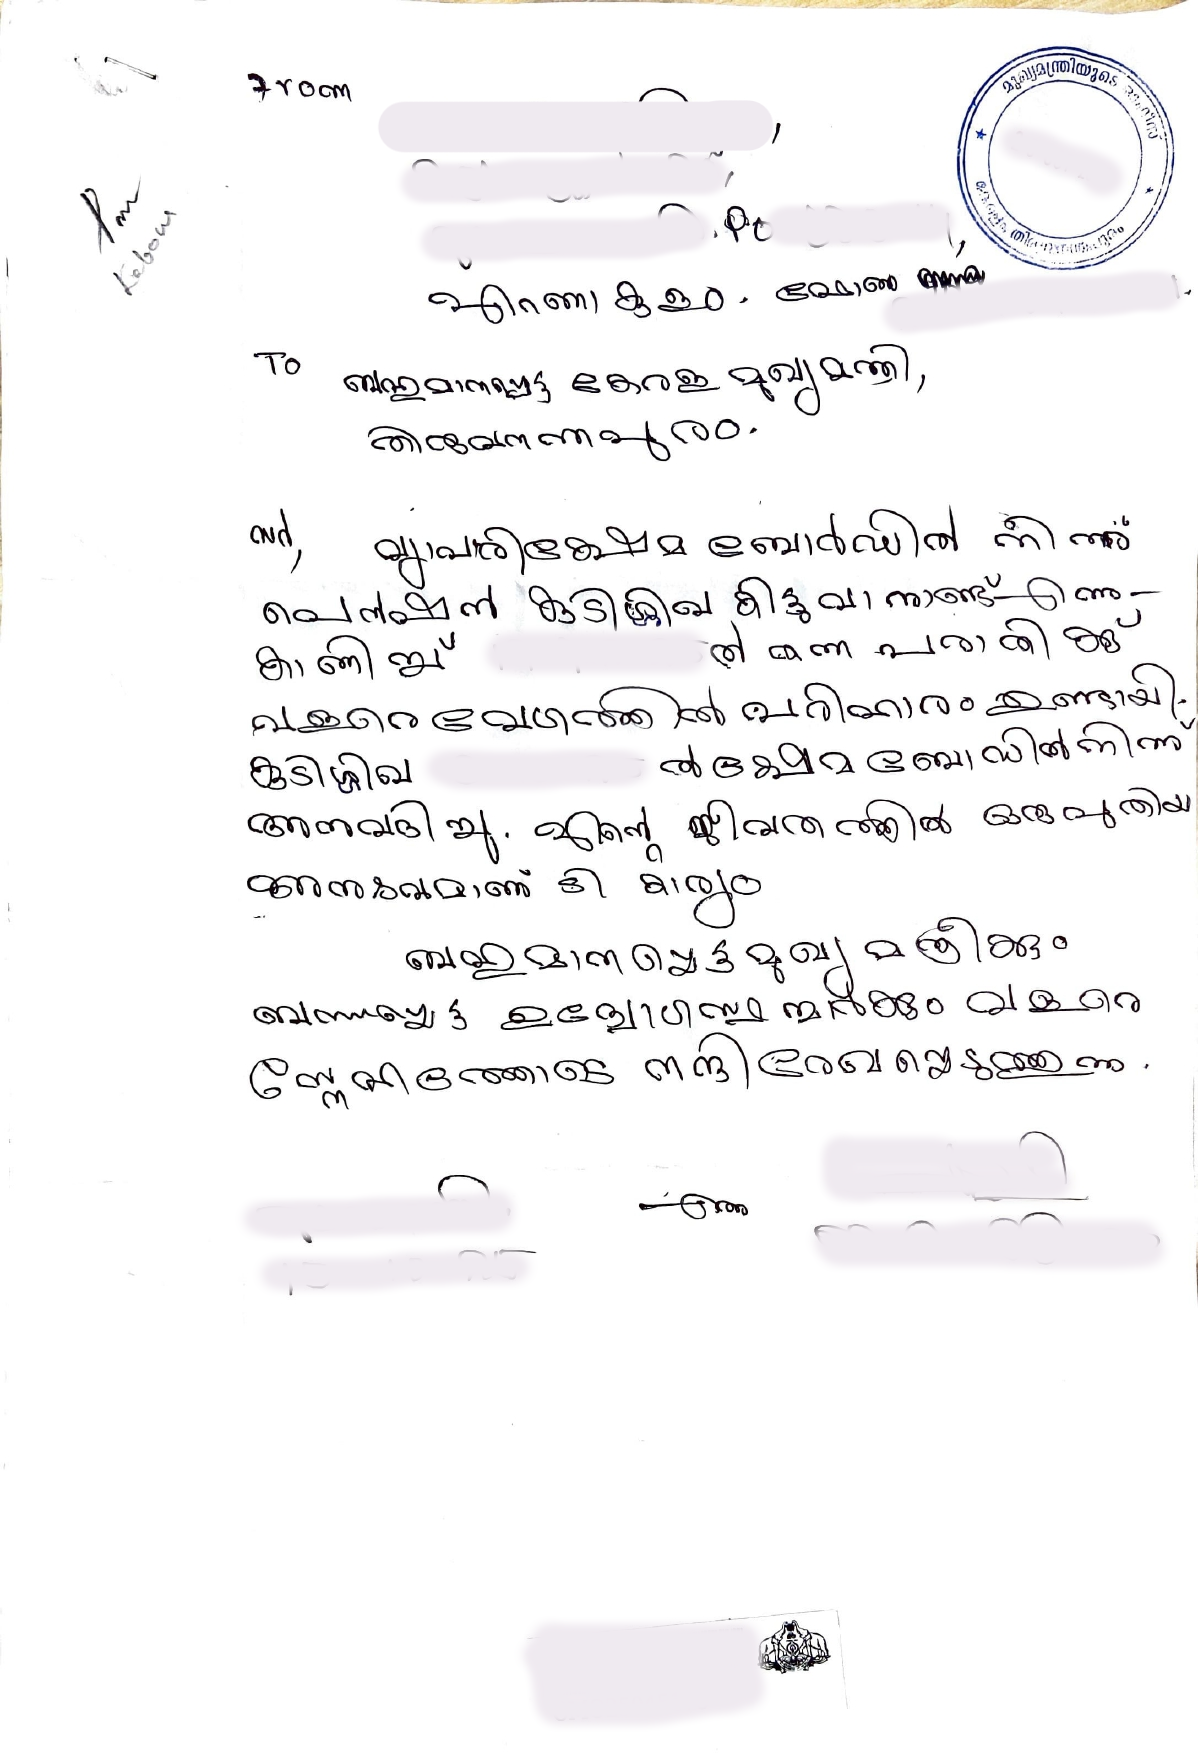 From
Po
എറണാകുളം. ഫോൺ
To
ബഹുമാനപ്പെട്ട കേരള മുഖ്യമന്ത്രി,
തിരുവനന്തപുരം.
സർ,
വ്യാപാരിക്ഷേമ ബോർഡിൽ നിന്ന്
പെൻഷൻ കുടിശ്ശിഖ കിട്ടുവാനുണ്ട് എന്നു
കാണിച്ച് ൽ തന്ന പരാതിക്ക്
വളരെ വേഗത്തിൽ പരിഹാരം ഉണ്ടായി.
കുടിശ്ശിഖ ൽ ക്ഷേമ ബോഡിൽ നിന്ന്
അനുവദിച്ചു. എന്റെ ജീവതത്തിൽ ഒരു പുതിയ
അനുഭവമാണ് ടി കാര്യം
ബഹുമാനപ്പെട്ട മുഖ്യമന്ത്രിക്കും
ബന്ധപ്പെട്ട ഉദ്യോഗസ്ഥന്മാർക്കും വളരെ
സ്നേഹത്തോടെ നന്ദി രേഖപ്പെടുത്തുന്നു.
എന്ന്
മുഖ്യമന്ത്രിയുടെ ഓഫീസ്